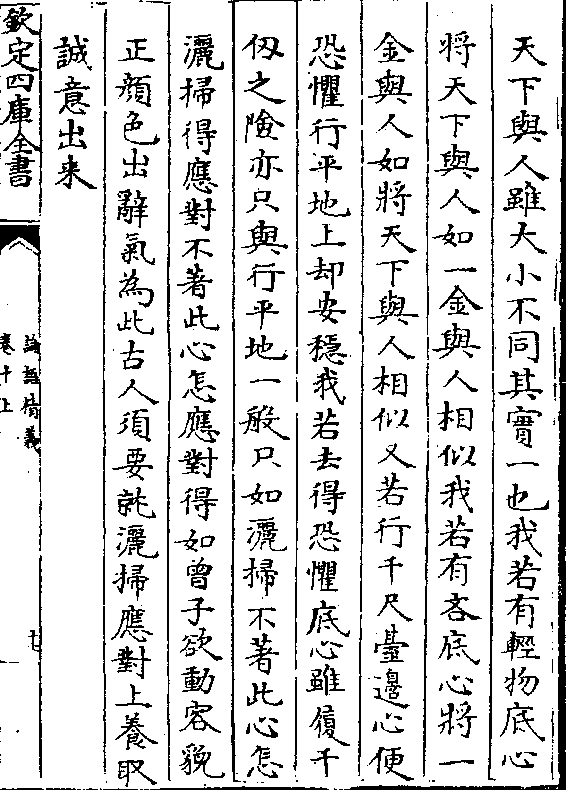 天下與人雖大小不同其實一也我若有輕物底心
將天下與人如一金與人相似我若有吝底心將一
金與人如將天下與人相似又若行千尺臺邊心便
恐懼行平地上却安穩我若去得恐懼底心雖履千
仭之險亦只與行平地一般只如灑掃不著此心怎
灑掃得應對不著此心怎應對得如曾子欲動容貌
正顔色出辭氣為此古人須要就灑掃應對上養取
誠意出来
欽定四庫全書
論語精義
卷十上